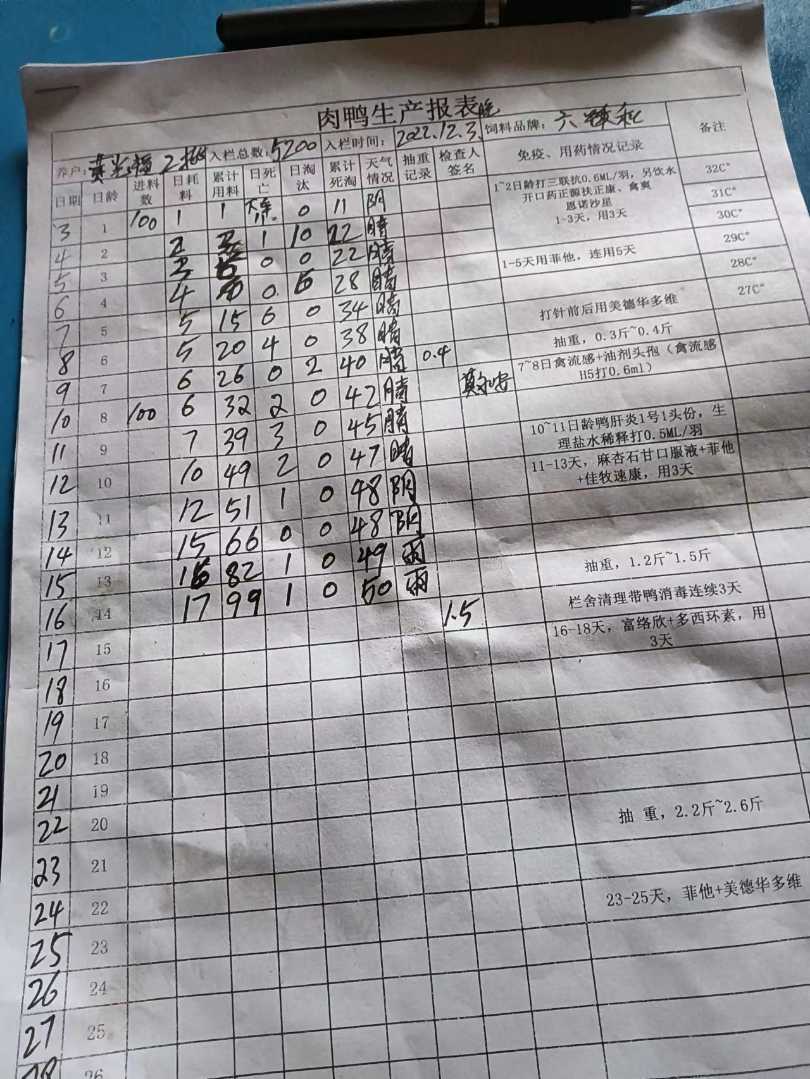 肉鸭生产报表
养户: 2批 入栏总数: 5200 入栏时间: 2022.12.3晚 饲料品牌: 六 和
日期 日龄 进料数 日耗料 累计用料 日死亡 日淘汰 累计死淘 天气情况 抽重记录 检查人签名 免疫、用药情况记录 备注
3 1 100 1 1 0 11 阴 1~2日龄打三联抗0.6ML/羽,另饮水开口药正源扶正康、禽爽 恩诺沙星 1-3天,用3天 32C°
4 2 2 1 10 22 晴 31C°
5 3 0 0 22 晴 30C°
6 4 4 0 28 晴 1-5天用菲他,连用5天 29C°
7 5 5 15 6 0 34 晴 28C°
8 6 5 20 4 0 38 晴 打针前后用美德华多维 27C°
9 7 6 26 0 2 40 晴 0.4 抽重,0.3斤~0.4斤
10 8 100 6 32 2 0 42 晴 7~8日禽流感+油剂头孢(禽流感H5打0.6ml)
11 9 7 39 3 0 45 晴
12 10 10 49 2 0 47 晴 10~11日龄鸭肝炎1号1头份,生理盐水稀释打0.5ML/羽
13 11 12 51 1 0 48 阴 11-13天,麻杏石甘口服液+菲他+佳牧速康,用3天
14 12 15 66 0 0 48 阴
15 13 16 82 1 0 49 雨
16 14 17 99 1 0 50 雨 1.5 抽重,1.2斤~1.5斤
17 15 栏舍清理带鸭消毒连续3天
18 16 16-18天,富络欣+多西环素,用3天
19 17
20 18
21 19
22 20
23 21 抽 重,2.2斤~2.6斤
24 22
25 23 23-25天,菲他+美德华多维
26 24
27 25
28 26